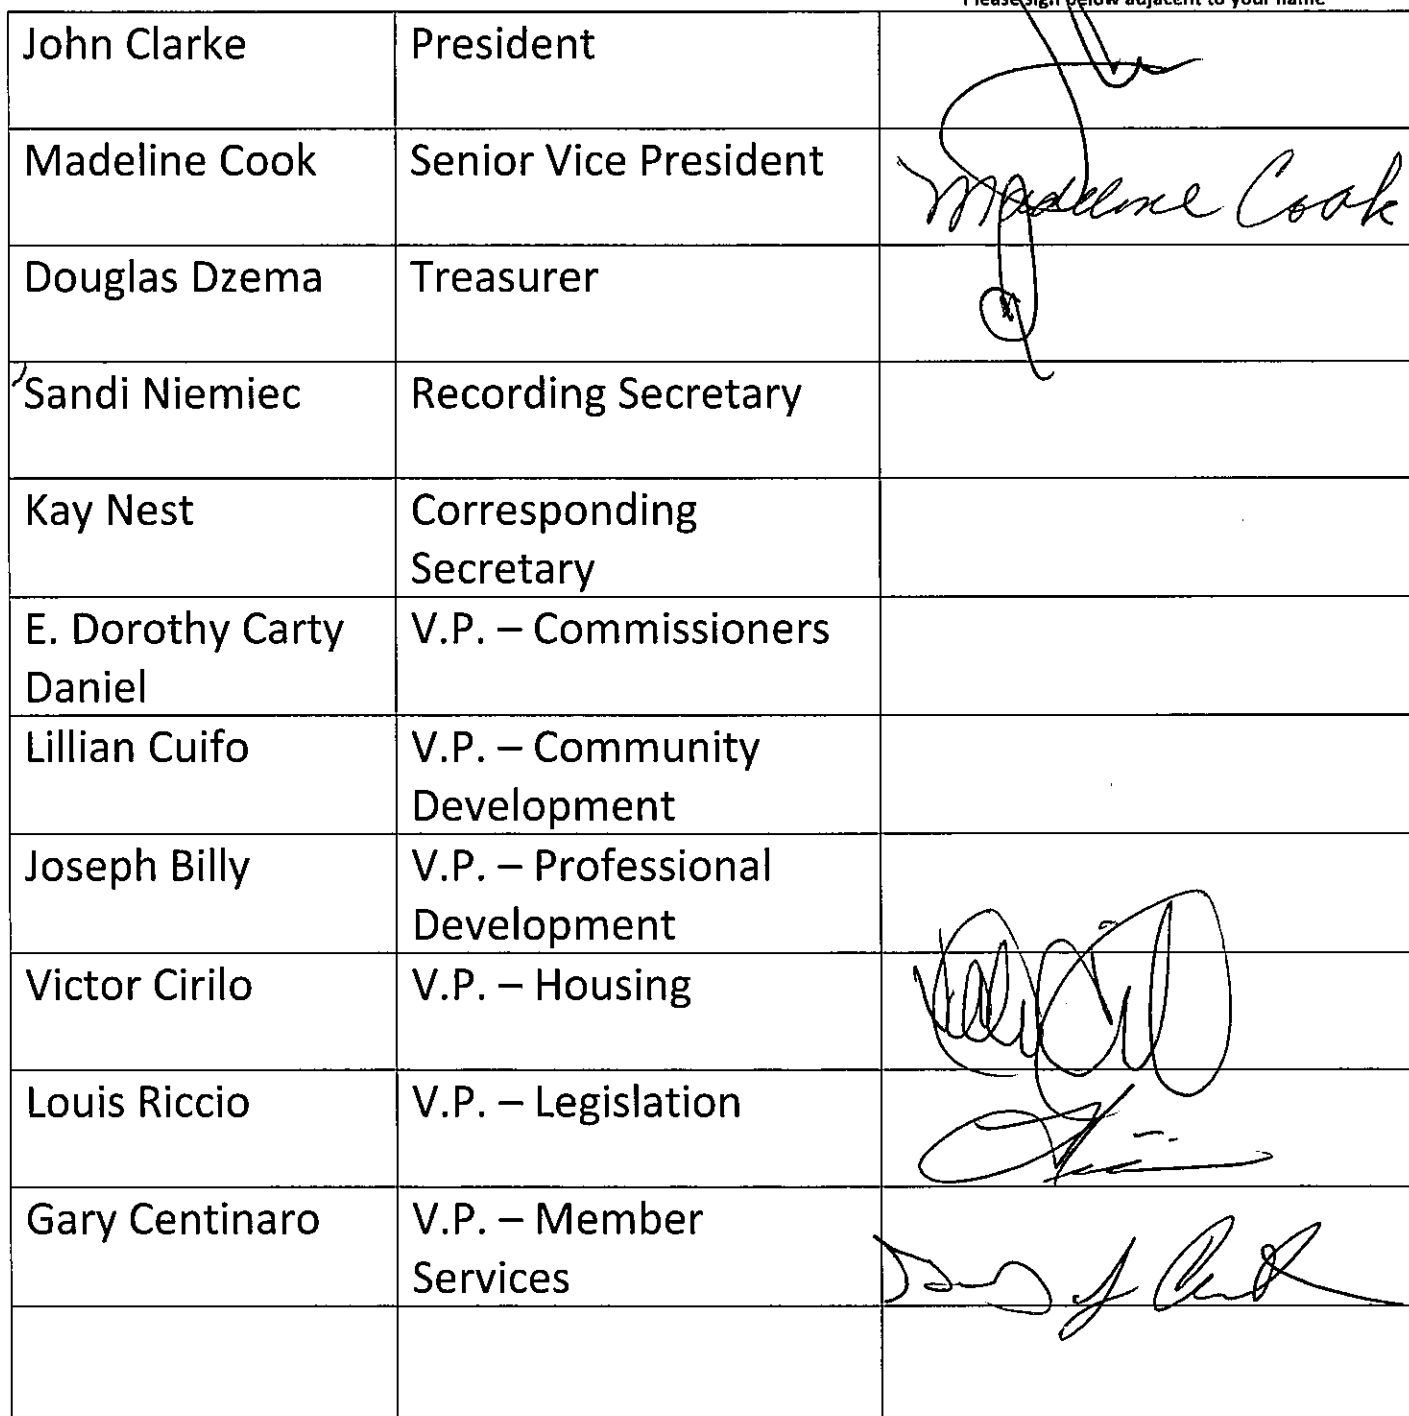 Please sign below adjacent to your name
John Clarke President
Madeline Cook Senior Vice President Madeline Cook
Douglas Dzema Treasurer
Sandi Niemiec Recording Secretary
Kay Nest Corresponding
Secretary
E. Dorothy Carty V.P. – Commissioners
Daniel
Lillian Cuifo V.P. – Community
Development
Joseph Billy V.P. – Professional
Development
Victor Cirilo V.P. – Housing
Louis Riccio V.P. – Legislation
Gary Centinaro V.P. – Member
Services